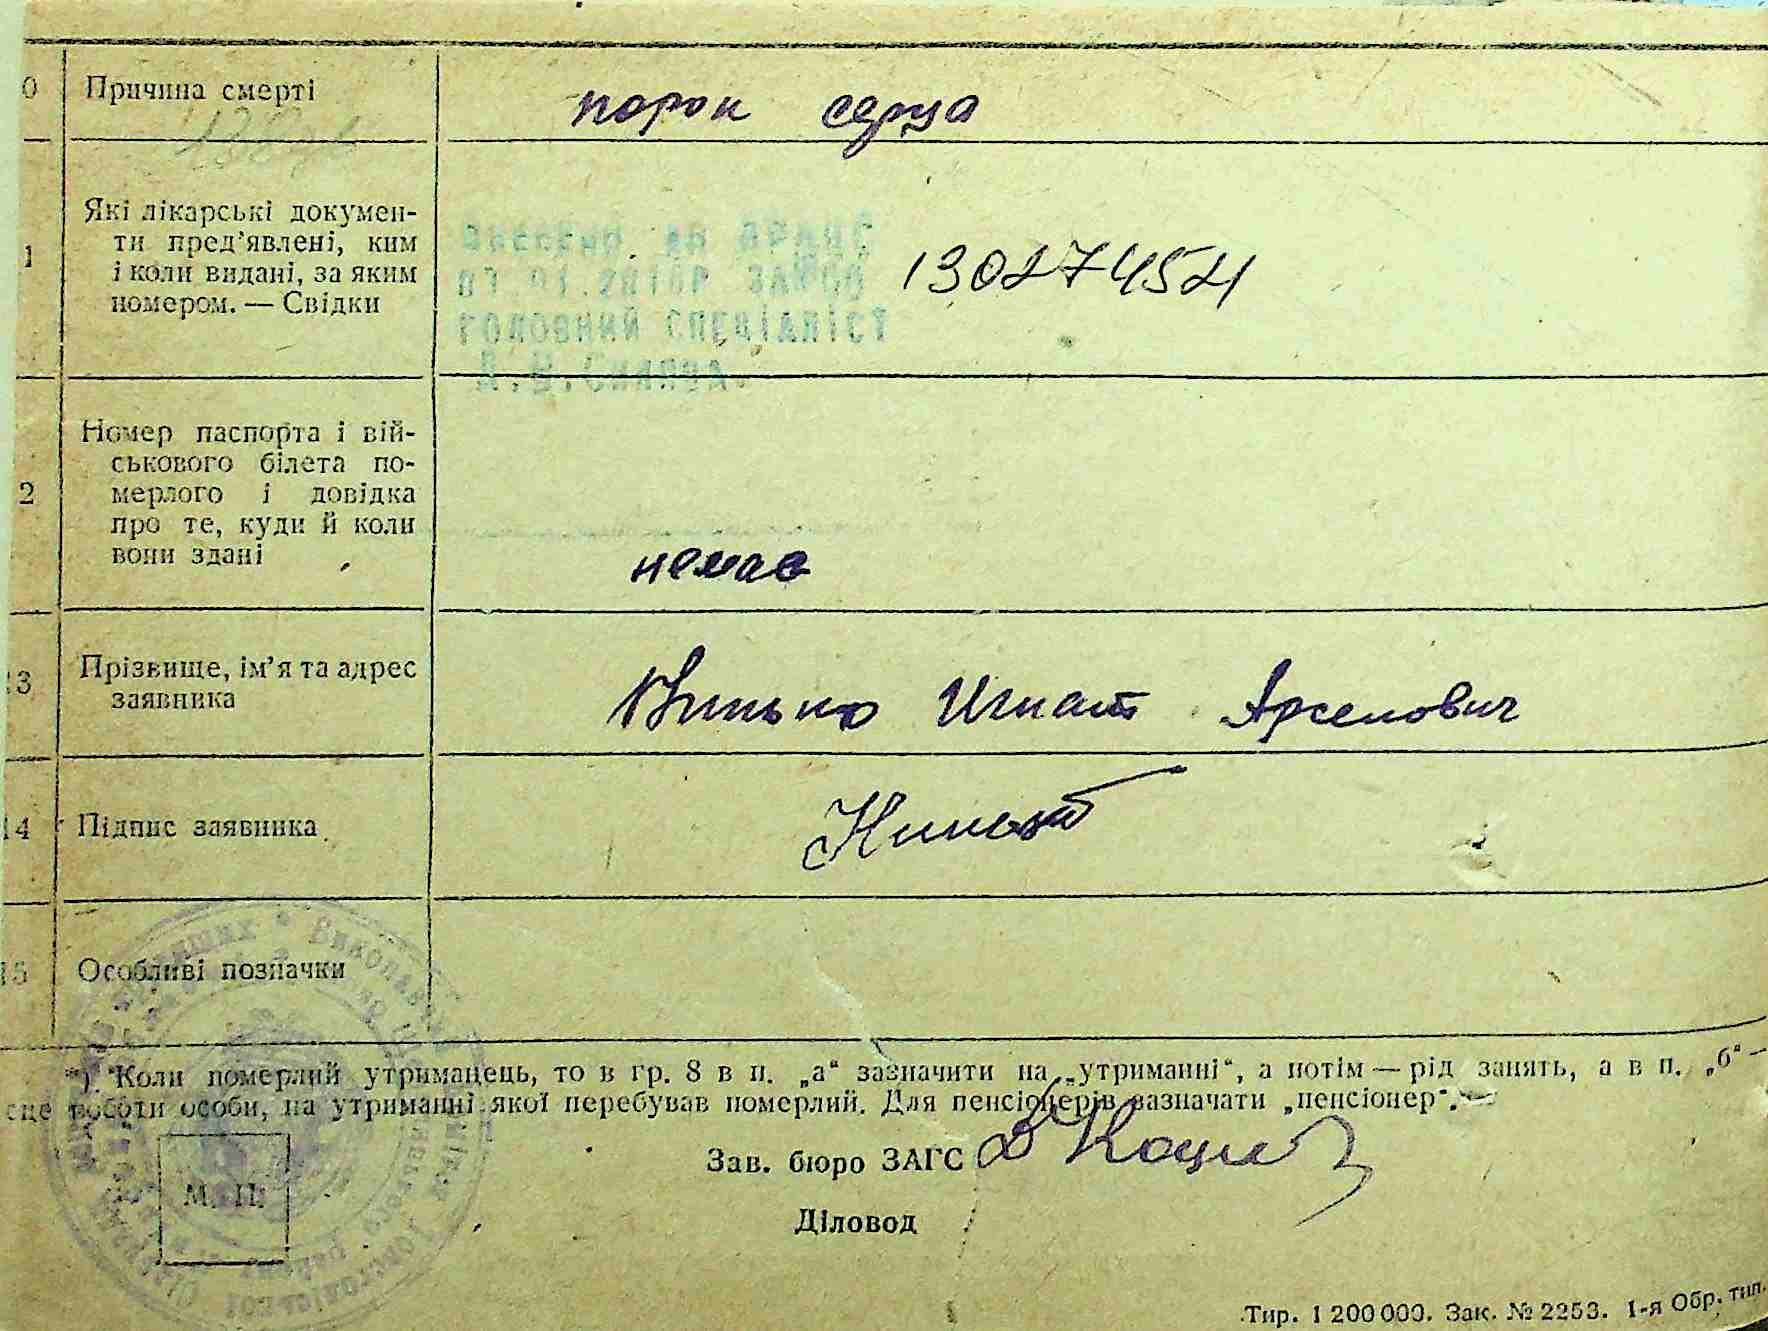 0 Причина смерті порок серца
Які лікарські докумен-
ти пред’явлені, ким
1 і коли видані, за яким 130274521
номером. — Свідки
головний спеціаліст
Номер паспорта і вій-
ськового білета по-
2 мерлого і довідка
про те, куди й коли
вони здані немає
13 Прізвище, ім’я та адрес Игнат Арсенович
заявника
14 Підпис заявника
15 Особливі позначки
*). Коли померлий утриманець, то в гр. 8 в п. „а“ зазначити на „утриманні“, а потім — рід занять, а в п. „б“ —
сце роботи особи, на утриманні якої перебував померлий. Для пенсіонерів зазначати „пенсіонер“. —
Зав. бюро ЗАГС
М. П.
Діловод
Тир. 1 200 000. Зак. № 2253. 1-я Обр. тип.